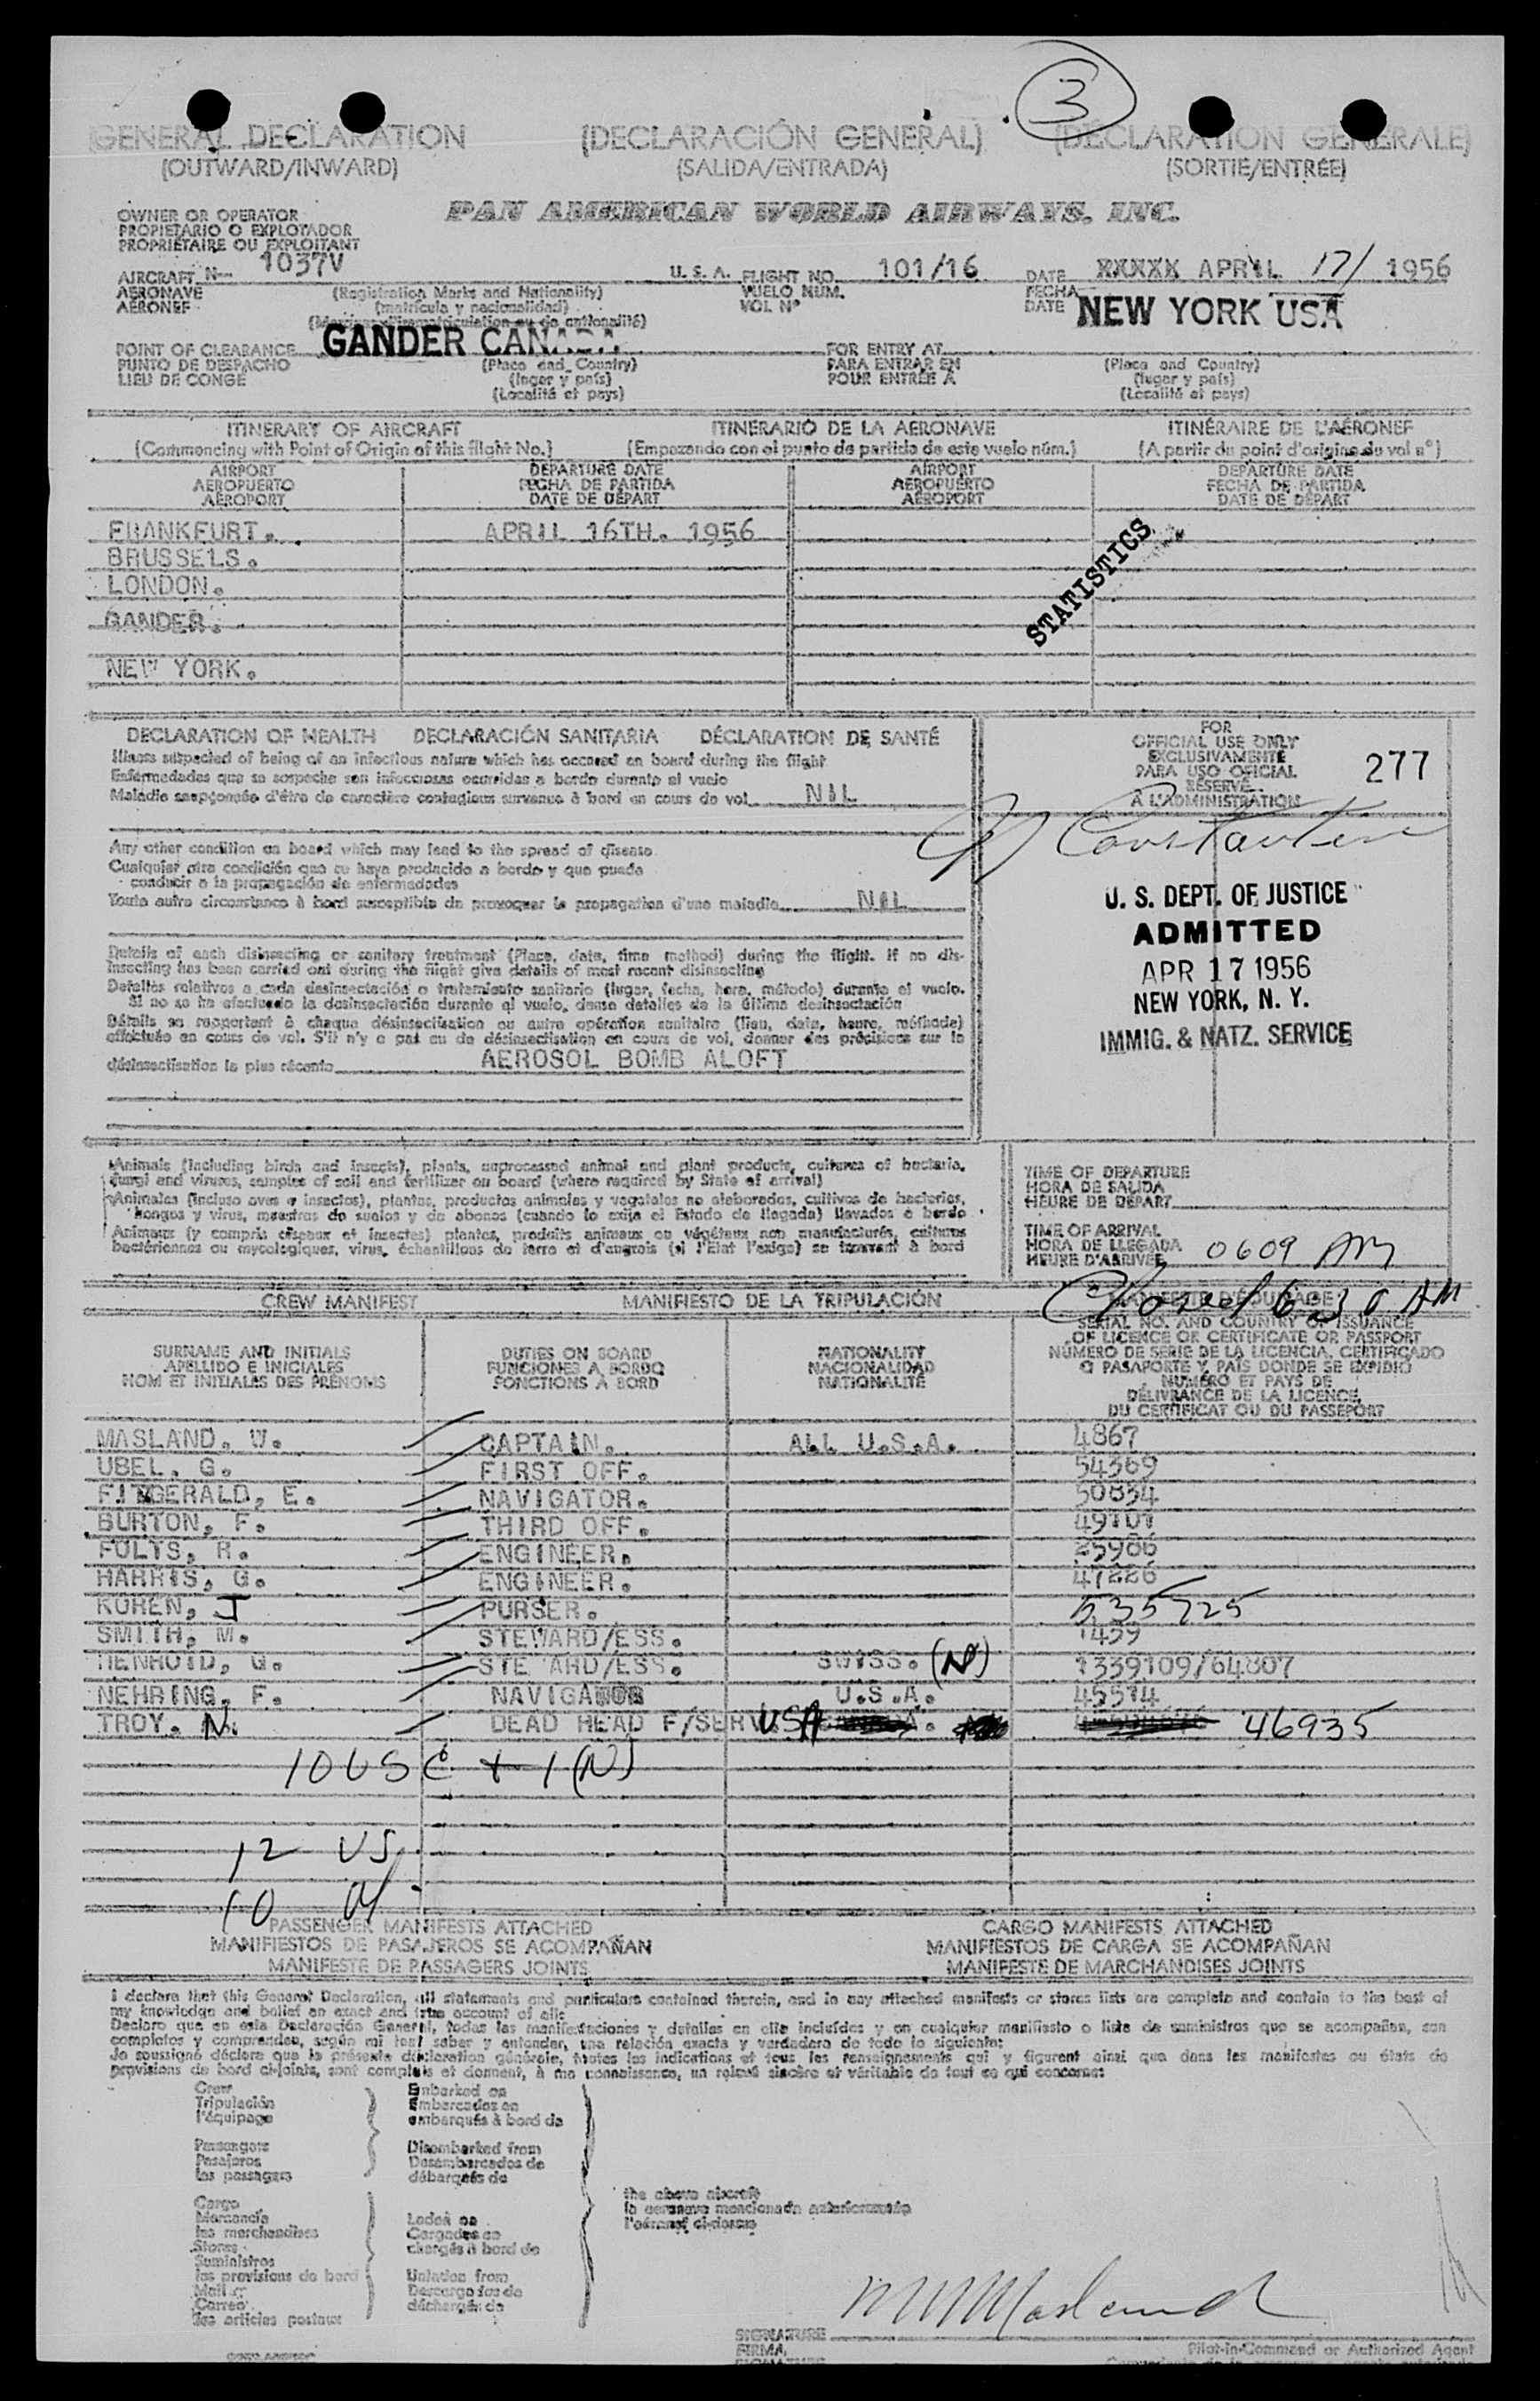 3
GENERAL DECLARATION (DECLARACIÓN GENERAL) (DÉCLARATION GÉNÉRALE)
(OUTWARD/INWARD) (SALIDA/ENTRADA) (SORTIE/ENTRÉE)
OWNER OR OPERATOR PAN AMERICAN WORLD AIRWAYS, INC.
PROPIETARIO O EXPLOTADOR
PROPRIÉTAIRE OU EXPLOITANT
AIRCRAFT N— 1037V U. S. A. FLIGHT NO. 101/16 DATE XXXXX APRIL 17/ 1956
AERONAVE (Registration Marks and Nationality) VUELO NUM. FECHA
AÉRONEF (matrícula y nacionalidad) VOL Nº DATE NEW YORK USA
(Marques d'immatriculation ou de nationalité)
POINT OF CLEARANCE GANDER CANADA FOR ENTRY AT
PUNTO DE DESPACHO (Place and Country) PARA ENTRAR EN (Place and Country)
LIEU DE CONGÉ (lugar y país) POUR ENTRÉE À (lugar y país)
(Localité et pays) (Localité et pays)
ITINERARY OF AIRCRAFT ITINERARIO DE LA AERONAVE ITINÉRAIRE DE L'AÉRONEF
(Commencing with Point of Origin of this flight No.) (Empezando con el punto de partida de este vuelo núm.) (A partir du point d'origine du vol nº)
AIRPORT DEPARTURE DATE AIRPORT DEPARTURE DATE
AEROPUERTO FECHA DE PARTIDA AEROPUERTO FECHA DE PARTIDA
AÉROPORT DATE DE DÉPART AÉROPORT DATE DE DÉPART
FRANKFURT. APRIL 16TH. 1956
BRUSSELS.
LONDON.
STATISTICS
GANDER.
NEW YORK.
DECLARATION OF HEALTH DECLARACIÓN SANITARIA DÉCLARATION DE SANTÉ
Illness suspected of being of an infectious nature which has occured on board during the flight
Enfermedades que se sospeche son infecciosas ocurridas a bordo durante el vuelo
Maladie soupçonnée d'être de caractère contagieux survenue à bord en cours de vol NIL
Any other condition on board which may lead to the spread of disease
Cualquier otra condición que se haya producido a bordo y que pueda
conducir a la propagación de enfermedades
Toute autre circonstance à bord susceptible de provoquer la propagation d'une maladie NIL
Details of each disinsecting or sanitary treatment (Place, date, time method) during the flight. If no dis-
insecting has been carried out during the flight give details of most recent disinsecting
Detalles relativos a cada desinsectación o tratamiento sanitario (lugar, fecha, hora, método) durante el vuelo.
Si no se ha efectuado la desinsectación durante el vuelo, dense detalles de la última desinsectación
Détails se rapportant à chaque désinsectisation ou autre opération sanitaire (lieu, date, heure, méthode)
effectuée en cours de vol. S'il n'y a pas eu de désinsectisation en cours de vol, donner des précisions sur la
désinsectisation la plus récente AEROSOL BOMB ALOFT
FOR
OFFICIAL USE ONLY
EXCLUSIVAMENTE
PARA USO OFICIAL 277
RÉSERVÉ
À L'ADMINISTRATION
U. S. DEPT. OF JUSTICE
ADMITTED
APR 17 1956
NEW YORK, N. Y.
IMMIG. & NATZ. SERVICE
Animals (including birds and insects), plants, unprocessed animal and plant products, cultures of bacteria,
fungi and viruses, samples of soil and fertilizer on board (where required by State of arrival)
Animales (incluso aves e insectos), plantas, productos animales y vegetales no elaborados, cultivos de bacterias,
hongos y virus, muestras de suelos y de abonos (cuando lo exija el Estado de llegada) llevados a bordo
Animaux (y compris oiseaux et insectes) plantes, produits animaux ou végétaux non manufacturés, cultures
bactériennes ou mycologiques, virus, échantillons de terre et d'engrais (si l'État l'exige) se trouvant à bord
TIME OF DEPARTURE
HORA DE SALIDA
HEURE DE DÉPART
TIME OF ARRIVAL
HORA DE LLEGADA
HEURE D'ARRIVÉE 0609 AM
Closed 630 AM
CREW MANIFEST MANIFIESTO DE LA TRIPULACIÓN MANIFESTE D'ÉQUIPAGE
SURNAME AND INITIALS DUTIES ON BOARD NATIONALITY
APELLIDO E INICIALES FUNCIONES A BORDO NACIONALIDAD
NOM ET INITIALES DES PRÉNOMS FONCTIONS À BORD NATIONALITÉ
SERIAL NO. AND COUNTRY OF ISSUANCE
OF LICENCE OR CERTIFICATE OR PASSPORT
NÚMERO DE SERIE DE LA LICENCIA, CERTIFICADO
O PASAPORTE Y PAÍS DONDE SE EXPIDIÓ
NUMÉRO ET PAYS DE
DÉLIVRANCE DE LA LICENCE,
DU CERTIFICAT OU DU PASSEPORT
MASLAND. W. CAPTAIN. ALL U.S.A. 4867
UBEL. G. FIRST OFF. 54369
FITZGERALD, E. NAVIGATOR. 50834
BURTON, F. THIRD OFF. 49101
FOLTS, R. ENGINEER. 25986
HARRIS, G. ENGINEER. 47226
KOREN, J PURSER. 535725
SMITH, M. STEWARD/ESS. 1439
HENROID, G. STEWARD/ESS. SWISS. (N) 1339109/64807
NEHRING, F. NAVIGATOR U.S.A. 45514
TROY. N. DEAD HEAD F/SERV. USA 46935
10 USC + 1 (N)
12 US
10
PASSENGER MANIFESTS ATTACHED CARGO MANIFESTS ATTACHED
MANIFIESTOS DE PASAJEROS SE ACOMPAÑAN MANIFIESTOS DE CARGA SE ACOMPAÑAN
MANIFESTE DE PASSAGERS JOINTS MANIFESTE DE MARCHANDISES JOINTS
I declare that this General Declaration, all statements and particulars contained therein, and in any attached manifests or stores lists are complete and contain to the best of
my knowledge and belief an exact and true account of all:
Declaro que en esta Declaración General, todas las manifestaciones y detalles en ella incluídos y en cualquier manifiesto o lista de suministros que se acompañan, son
completos y comprenden, según mi leal saber y entender, una relación exacta y verdadera de todo lo siguiente:
Je soussigné déclare que la présente déclaration générale, toutes les indications et tous les renseignements qui y figurent ainsi que dans les manifestes ou états de
provisions de bord ci-joints, sont complets et donnent, à ma connaissance, un relevé sincère et véritable de tout ce qui concerne:
Crew Embarked on
Tripulación Embarcados en
l'équipage embarqués à bord de
Passengers Disembarked from
Pasajeros Desembarcados de
les passagers débarqués de
the above aircraft
la aeronave mencionada anteriormente
l'aéronef ci-dessus
Cargo
Mercancía Laden on
les marchandises Cargados en
Stores chargés à bord de
Suministros
les provisions de bord Unladen from
Mail Descargados de
Correo déchargés de
les articles postaux
W Masland
SIGNATURE
FIRMA Pilot-in-Command or Authorized Agent